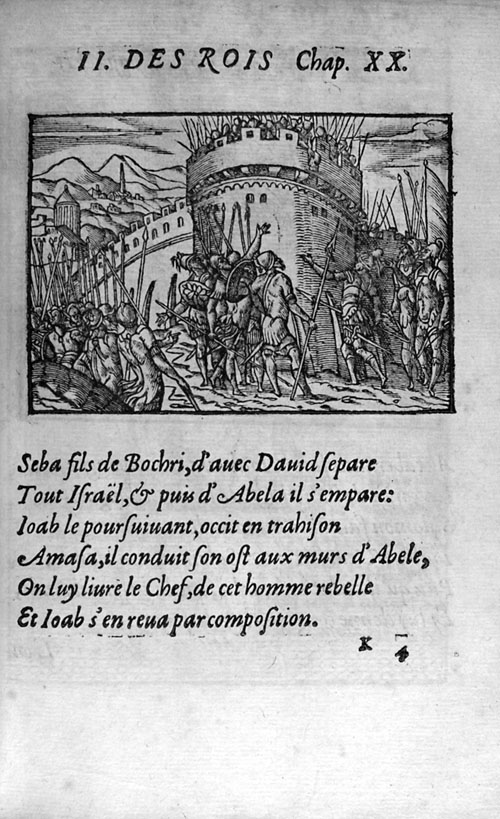 II. DES ROIS Chap. XX.
Seba fils de Bochri, d'auec Dauid ſepare
Tout Iſraël, & puis d'Abela il s'empare:
Ioab le pourſuiuant, occit en trahiſon
Amaſa, il conduit ſon oſt aux murs d'Abele,
On luy liure le Chef, de cet homme rebelle
Et Ioab s'en reua par compoſition.
K 4